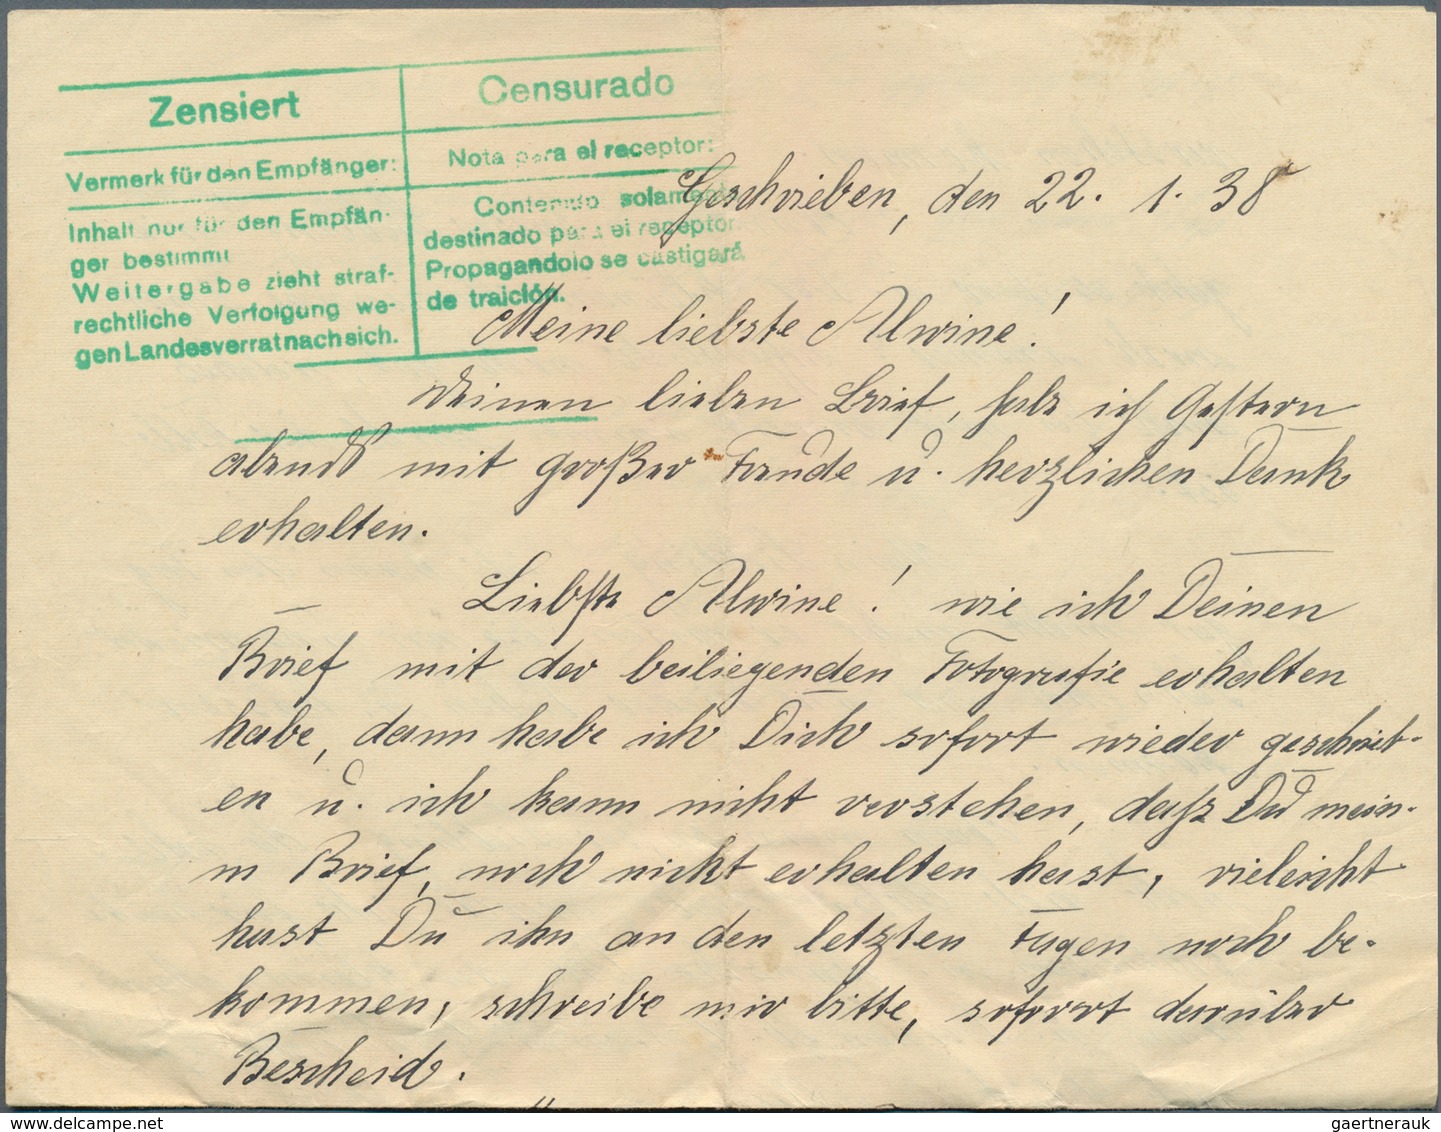 Zensiert
Censurado
Vermerk für den Empfänger:
Nota para el receptor:
Inhalt nur für den Empfän-
ger bestimmt
Weitergabe zieht straf-
rechtliche Verfolgung we-
gen Landesverrat nach sich.
Contenido solament
destinado para el receptor.
Propagandolo se castigará
de traición.
Geschrieben, den 22. 1. 38
Meine liebste Alwine!
Deinen lieben Brief, habe ich Gestern
abend mit großer Freude u. herzlichen Dank
erhalten.
Liebste Alwine! wie ich Deinen
Brief mit der beiliegenden Fotografie erhalten
habe, dann habe ich Dich sofort wieder geschrieb-
en u. ich kann nicht verstehen, daß Du mein-
n Brief, noch nicht erhalten hast, vieleicht
hast Du ihn an den letzten Tagen noch be-
kommen, schreibe mir bitte, soforrt darüber
Bescheid.
gaertnerauk